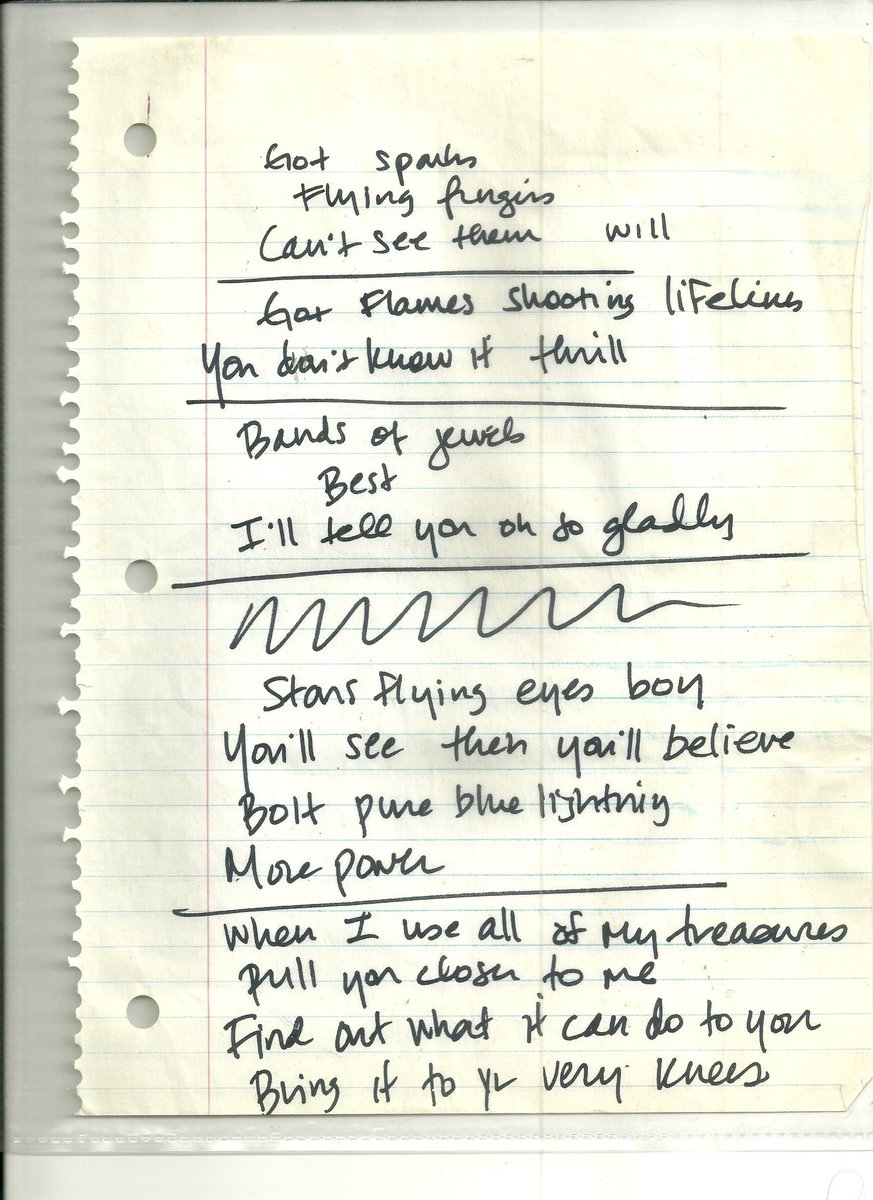 Got sparks
Flying fingers
Can't see them will
Got Flames shooting lifelines
You don't know it thrill
Bands of jewels
Best
I'll tell you oh so gladly
Stars flying eyes boy
You'll see then you'll believe
Bolt pure blue lightning
More power
When I use all of my treasures
Pull you closer to me
Find out what it can do to you
Bring it to yr very knees